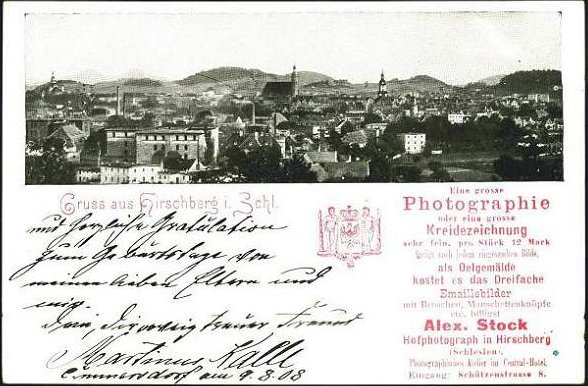 Gruss aus Hirschberg i. Schl.
und herzliche Gratulation
zum Geburtstage von
meinen lieben Eltern und
mir.
Dein, Dir ewig treuer Freund
Martinus
am 9.3.08
Eine grosse
Photographie
oder eine grosse
Kreidezeichnung
sehr fein, pro Stück 12 Mark
fertigt nach jedem eingesandten Bilde,
als Oelgemälde
kostet es das Dreifache
Emaillebilder
mit Broschen, Manschettenknöpfe
etc. billigst
Alex. Stock
Hofphotograph in Hirschberg
(Schlesien).
Photographisches Atelier im Central-Hotel.
Eingang: Schützenstrasse 8.